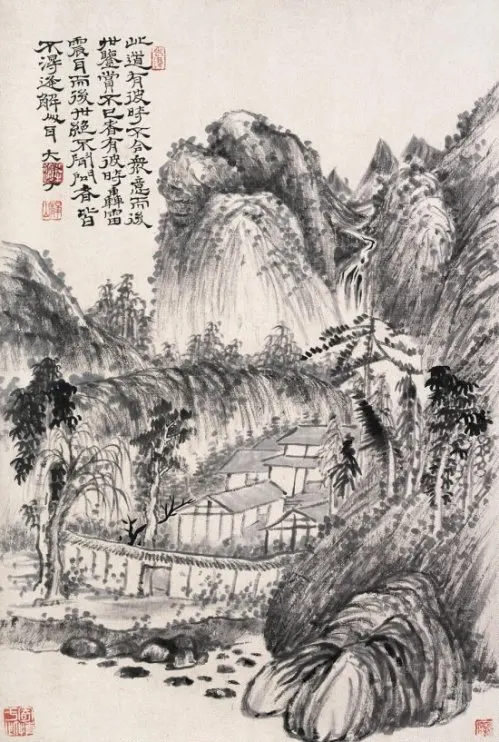 此道有彼時不合眾意而後
世鑒賞不已者有彼時轟雷
震耳而後世絕不聞問者皆
不得逢解人耳 大滌子